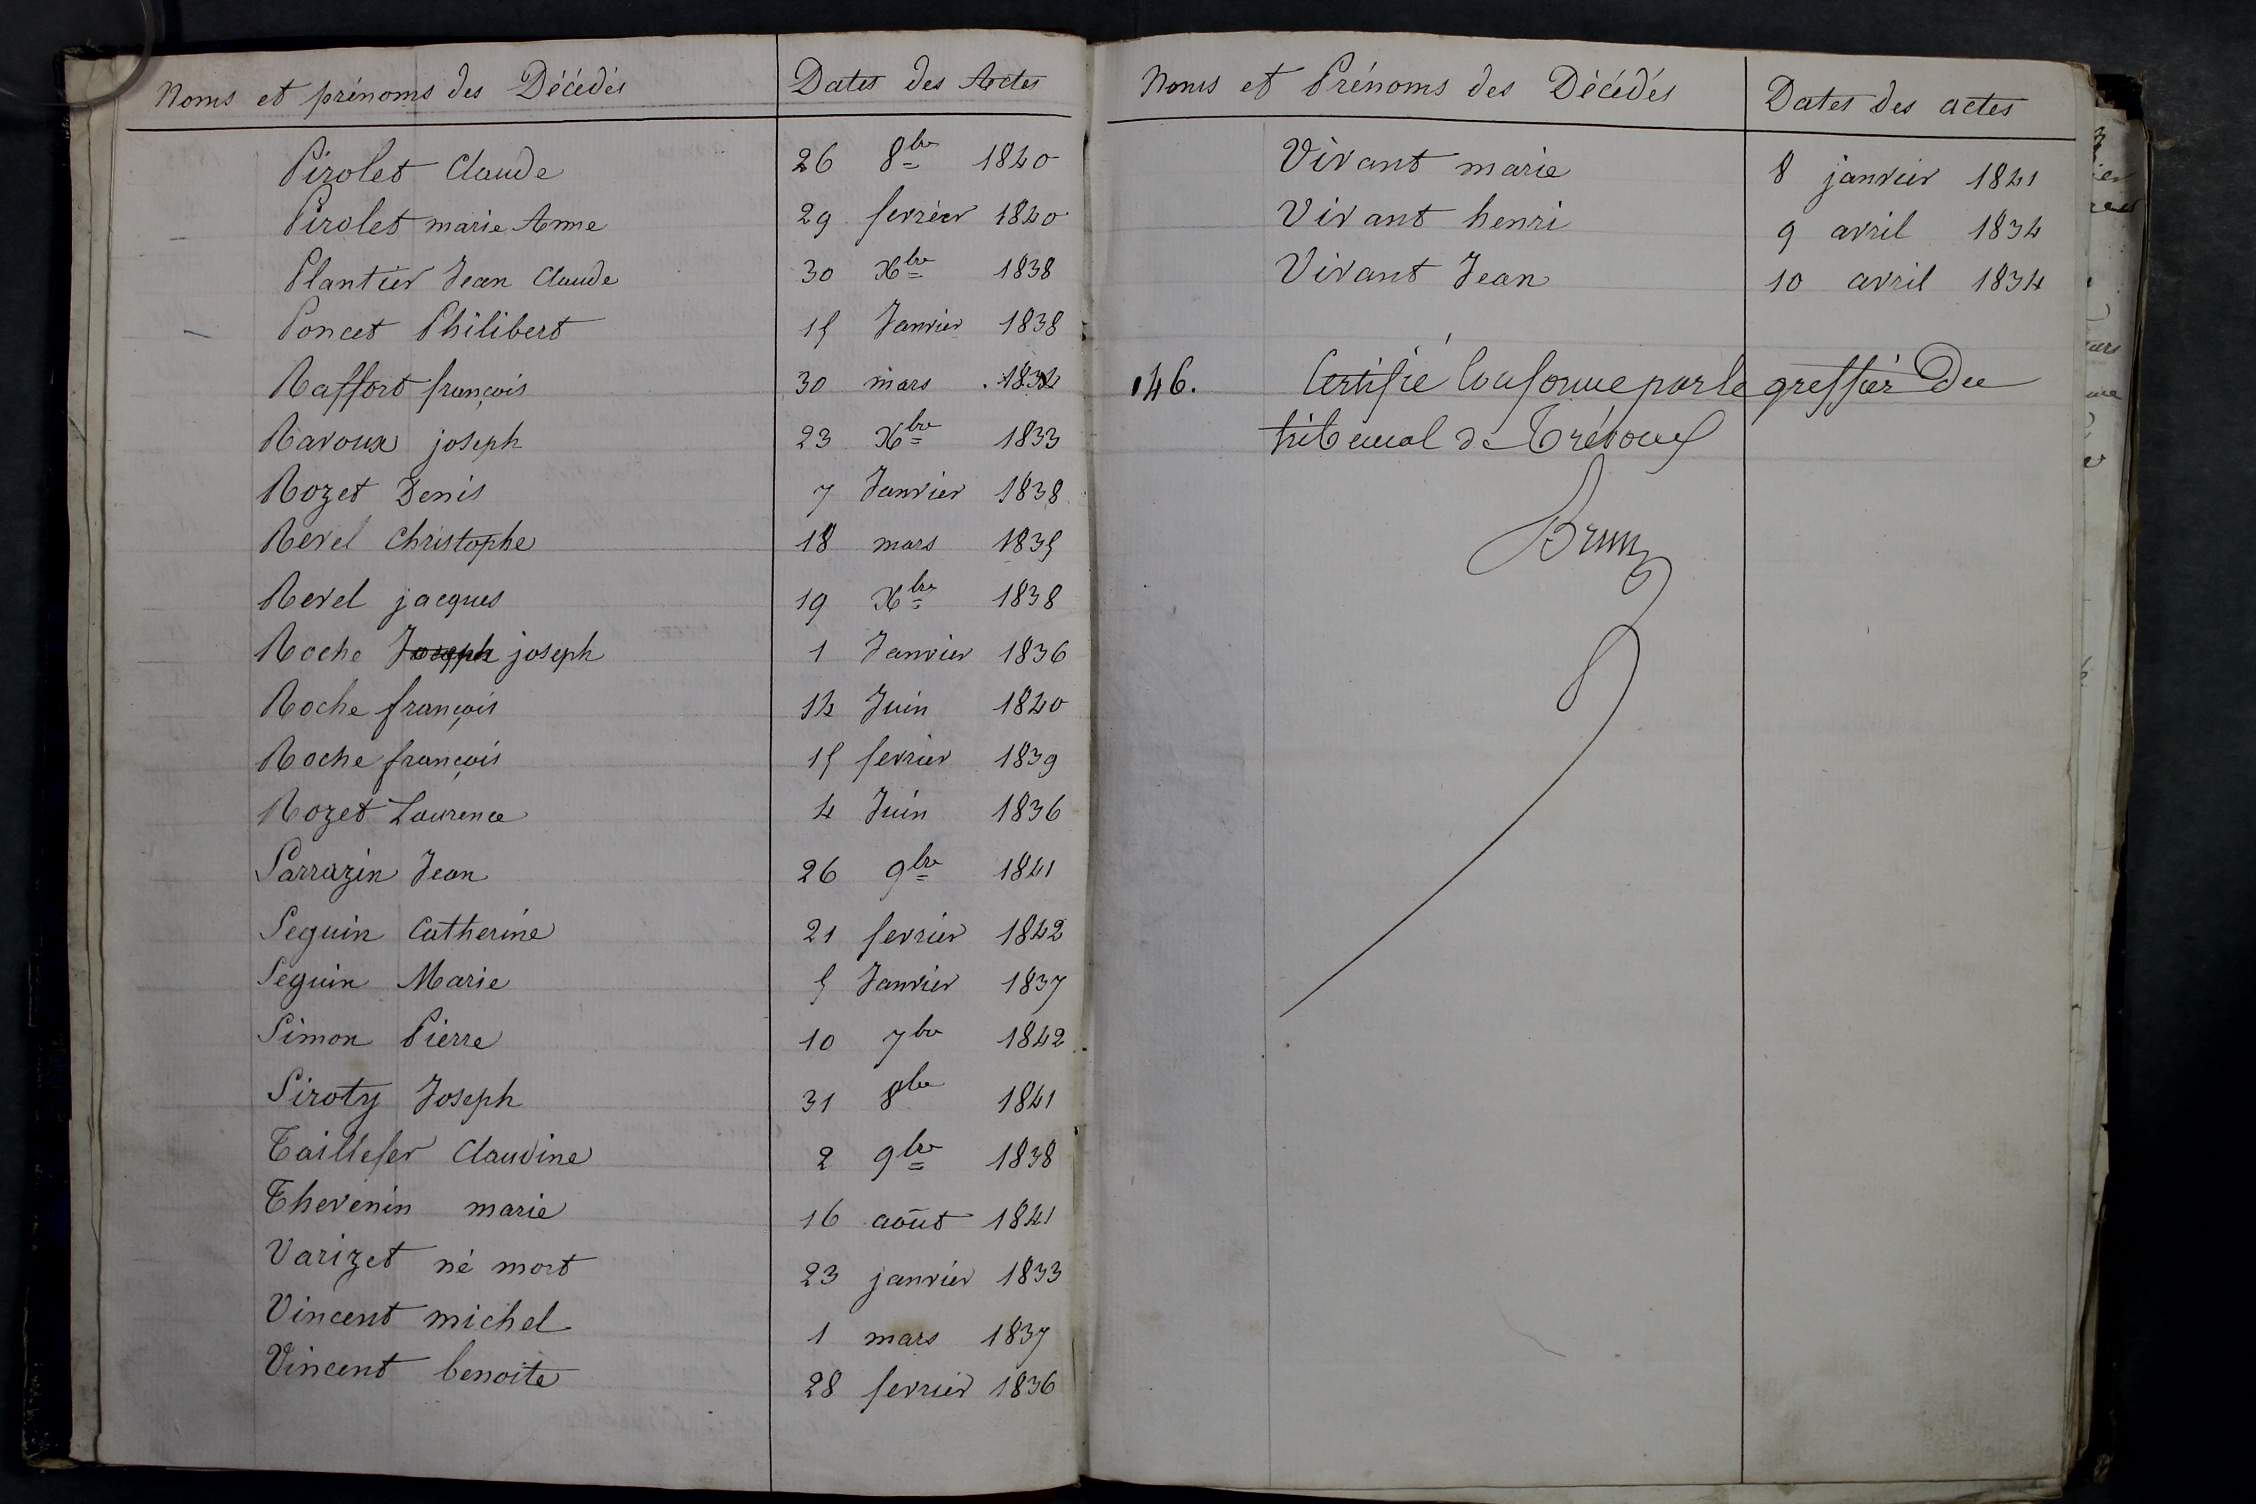 Noms et prénoms des Décédés Dates des Actes
Pirolet Claude 26 8bre 1840
Pirolet marie Anne 29 fevrier 1840
Plantier Jean Claude 30 Xbre 1838
Poncet Philibert 15 Janvier 1838
Raffort françois 30 mars 1834
Ravoux joseph 23 Xbre 1833
Rozet Denis 7 Janvier 1838
Revel Christophe 18 mars 1835
Revel jacques 19 Xbre 1838
Roche Joseph joseph 1 Janvier 1836
Roche françois 14 Juin 1840
Roche françois 15 fevrier 1839
Rozet Laurence 4 Juin 1836
Sarrazin Jean 26 9bre 1841
Seguin Catherine 21 fevrier 1842
Seguin Marie 5 Janvier 1837
Simon Pierre 10 7bre 1842
Siroty Joseph 31 8bre 1841
Taillefer Claudine 2 9bre 1838
Thevenin marie 16 août 1841
Varizet né mort 23 janvier 1833
Vincent michel 1 mars 1837
Vincent benoite 28 fevrier 1836
Noms et Prénoms des Décédés Dates des actes
Vivant marie 8 janvier 1841
Vivant henri 9 avril 1834
Vivant Jean 10 avril 1834
146. Certifié Conforme par le greffier Du
tribunal de Trévoux
Brun